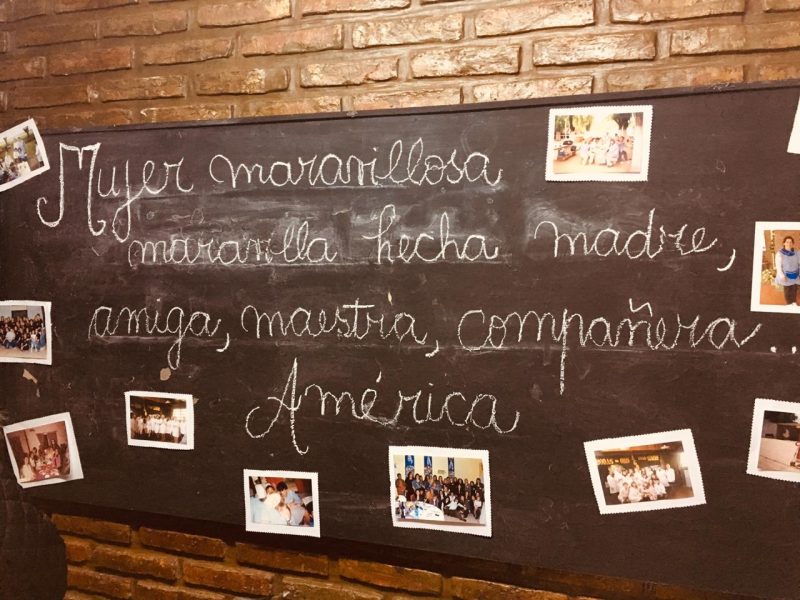 Mujer maravillosa
maravilla hecha madre,
amiga, maestra, compañera...
América